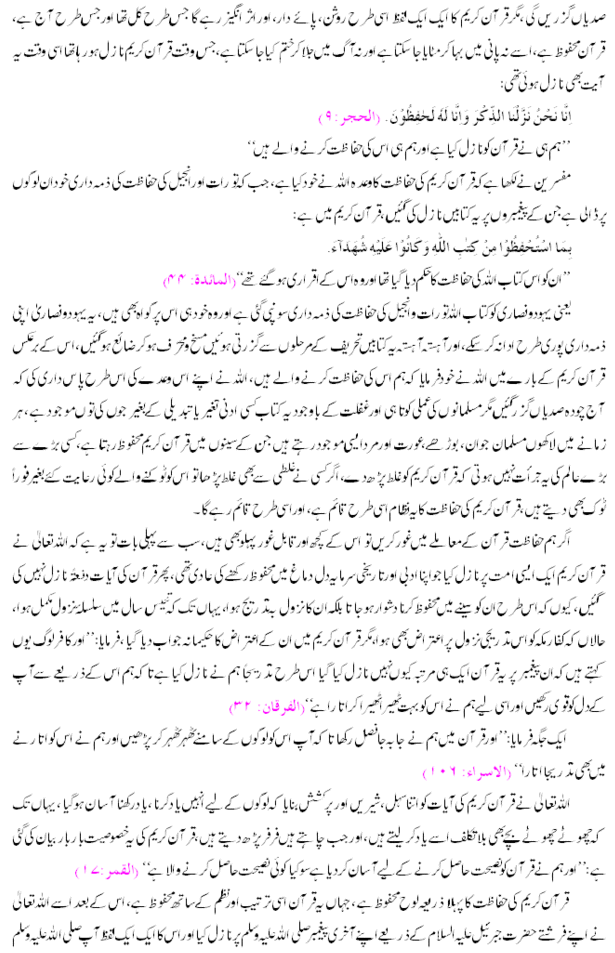 صدیاں گزریں گی، مگر قرآن کریم کا ایک ایک لفظ اسی طرح روشن، پائے دار، اور اثر انگیز رہے گا جس طرح کل تھا اور جس طرح آج ہے،
قرآن محفوظ ہے، اسے نہ پانی میں بہا کر مٹایا جاسکتا ہے اور نہ آگ میں جلا کر ختم کیا جاسکتا ہے، جس وقت قرآن کریم نازل ہو رہا تھا اسی وقت یہ
آیت بھی نازل ہوئی تھی:
اِنَّا نَحْنُ نَزَّلْنَا الذِّکْرَ وَاِنَّا لَہٗ لَحٰفِظُوْنَ۔ (الحجر:۹)
’’ہم ہی نے قرآن کو نازل کیا ہے اور ہم ہی اس کی حفاظت کرنے والے ہیں‘‘
مفسرین نے لکھا ہے کہ قرآن کریم کی حفاظت کا وعدہ اللہ نے خود کیا ہے، جب کہ تورات اور انجیل کی حفاظت کی ذمہ داری خود ان لوگوں
پر ڈالی ہے جن کے پیغمبروں پر یہ کتابیں نازل کی گئیں، قرآن کریم میں ہے:
بِمَا اسْتُحْفِظُوْا مِنْ کِتٰبِ اللّٰہِ وَکَانُوْا عَلَیْہِ شُھَدَآءَ۔
’’ان کو اس کتاب اللہ کی حفاظت کا حکم دیا گیا تھا اور وہ اس کے اقراری ہو گئے تھے‘‘ (المائدۃ: ۴۴)
یعنی یہود و نصاری کو کتاب اللہ تورات و انجیل کی حفاظت کی ذمہ داری سونپی گئی ہے اور وہ خود ہی اس پر گواہ بھی ہیں، یہ یہود و نصاریٰ اپنی
ذمہ داری پوری طرح ادا نہ کر سکے، اور آہستہ آہستہ یہ کتابیں تحریف کے مرحلوں سے گزرتی ہوئیں مسخ و محرف ہو کر ضائع ہو گئیں، اس کے برعکس
قرآن کریم کے بارے میں اللہ نے خود فرمایا کہ ہم اس کی حفاظت کرنے والے ہیں، اللہ نے اپنے اس وعدے کی اس طرح پاس داری کی کہ
آج چودہ صدیاں گزر گئیں مگر مسلمانوں کی عملی کوتاہی اور غفلت کے باوجود یہ کتاب کسی ادنی تغیر یا تبدیلی کے بغیر جوں کی توں موجود ہے، ہر
زمانے میں لاکھوں مسلمان جوان، بوڑھے، عورت اور مرد ایسے موجود رہتے ہیں جن کے سینوں میں قرآن کریم محفوظ رہتا ہے، کسی بڑے سے
بڑے عالم کی یہ جرأت نہیں ہوتی کہ قرآن کریم کو غلط پڑھ دے، اگر کسی نے غلطی سے بھی غلط پڑھا تو اس کو ٹوکنے والے کوئی رعایت کئے بغیر فوراً
ٹوک بھی دیتے ہیں، قرآن کریم کی حفاظت کا یہ نظام اسی طرح قائم ہے، اور اسی طرح قائم رہے گا۔
اگر ہم حفاظت قرآن کے معاملے میں غور کریں تو اس کے کچھ اور قابل غور پہلو بھی ہیں، سب سے پہلی بات تو یہ ہے کہ اللہ تعالیٰ نے
قرآن کریم ایک ایسی امت پر نازل کیا جو اپنا ادبی اور تاریخی سرمایہ دل و دماغ میں محفوظ رکھنے کی عادی تھی، پھر قرآن کی آیات دفعۃً نازل نہیں کی
گئیں، کیوں کہ اس طرح ان کو سینے میں محفوظ کرنا دشوار ہو جاتا بلکہ ان کا نزول بہ تدریج ہوا، یہاں تک کہ تیئیس سال میں سلسلۂ نزول مکمل ہوا،
حالاں کہ کفار مکہ کو اس تدریجی نزول پر اعتراض بھی ہوا، مگر قرآن کریم میں ان کے اعتراض کا حکیمانہ جواب دیا گیا، فرمایا: ’’اور کافر لوگ یوں
کہتے ہیں کہ ان پیغمبر پر یہ قرآن ایک ہی مرتبہ کیوں نہیں نازل کیا گیا اس طرح تدریجاً ہم نے نازل کیا ہے تاکہ ہم اس کے ذریعے سے آپ
کے دل کو قوی رکھیں اور اسی لیے ہم نے اس کو بہت ٹھیرا ٹھیرا کر اتارا ہے‘‘ (الفرقان: ۳۲)
ایک جگہ فرمایا: ’’اور قرآن میں ہم نے جا بہ جا فصل رکھا تاکہ آپ اس کو لوگوں کے سامنے ٹھہر ٹھہر کر پڑھیں اور ہم نے اس کو اتارنے
میں بھی تدریجاً اتارا‘‘ (الاسراء: ۱۰۶)
اللہ تعالیٰ نے قرآن کریم کی آیات کو اتنا سہل، شیریں اور پرکشش بنایا کہ لوگوں کے لیے انہیں یاد کرنا، یاد رکھنا آسان ہو گیا، یہاں تک
کہ چھوٹے چھوٹے بچے بھی بلا تکلف اسے یاد کر لیتے ہیں، اور جب چاہتے ہیں فرفر پڑھ دیتے ہیں، قرآن کریم کی یہ خصوصیت بار بار بیان کی گئی
ہے: ’’اور ہم نے قرآن کو نصیحت حاصل کرنے کے لیے آسان کر دیا ہے سو کیا کوئی نصیحت حاصل کرنے والا ہے‘‘ (القمر:۱۷)
قرآن کریم کی حفاظت کا پہلا ذریعہ لوح محفوظ ہے، جہاں یہ قرآن اسی ترتیب اور نظم کے ساتھ محفوظ ہے، اس کے بعد اسے اللہ تعالیٰ
نے اپنے فرشتے حضرت جبرئیل علیہ السلام کے ذریعے اپنے آخری پیغمبر صلی اللہ علیہ وسلم پر نازل کیا اور اس کا ایک ایک لفظ آپ صلی اللہ علیہ وسلم